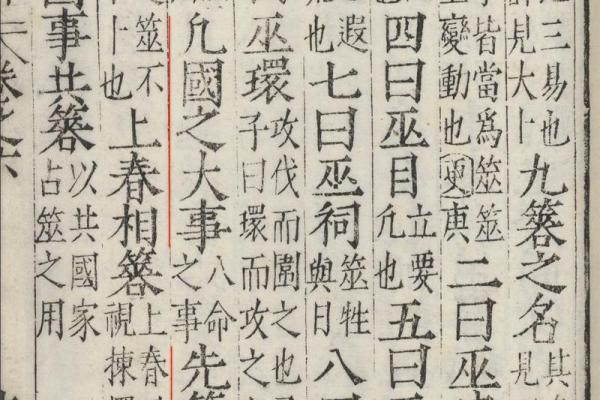 三易也見大卜九簭之名其見
皆當爲筮筮變動也更庚二曰巫
四曰巫目立要凡也五曰
遐也七曰巫祠筮牲與日八
巫環攻伐而圍之也子曰環而攻之
凡國之大事八命之事先
筮不卜也上春相簭上春視揀
事共簭以共國家占筮之用